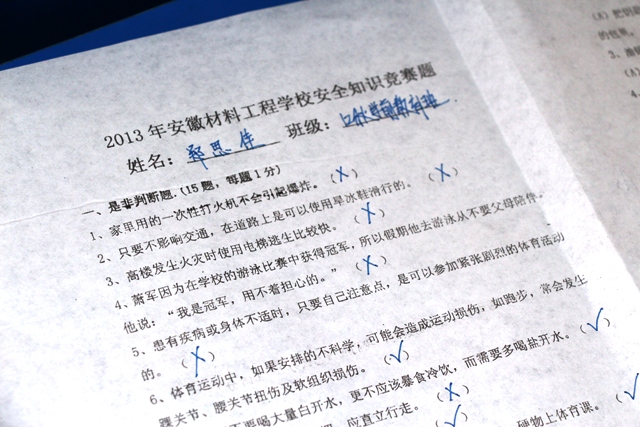 2013年安徽材料工程学校安全知识竞赛题
姓名：郅思佳 班级：
一、是非判断题.（15题，每题1分）
1、家里用的一次性打火机不会引起爆炸。（X）
2、只要不影响交通，在道路上是可以使用旱冰鞋滑行的。（X）
3、高楼发生火灾时使用电梯逃生比较快。（X）
4、萧军因为在学校的游泳比赛中获得冠军，所以假期他去游泳从不要父母陪伴。
他说：“我是冠军，用不着担心的。”（X）
5、患有疾病或身体不适时，只要自己注意点，是可以参加紧张剧烈的体育活动
的。（X）
6、体育运动中，如果安排的不科学，可能会造成运动损伤，如跑步，常会发生
踝关节、腰关节扭伤及软组织损伤。（√）
不要喝大量白开水，更不应该暴食冷饮，而需要多喝盐开水。（√）
应直立行走。（X）
（√）
硬物上体育课。（√）
（8）把钥
的包里。
3、
4、